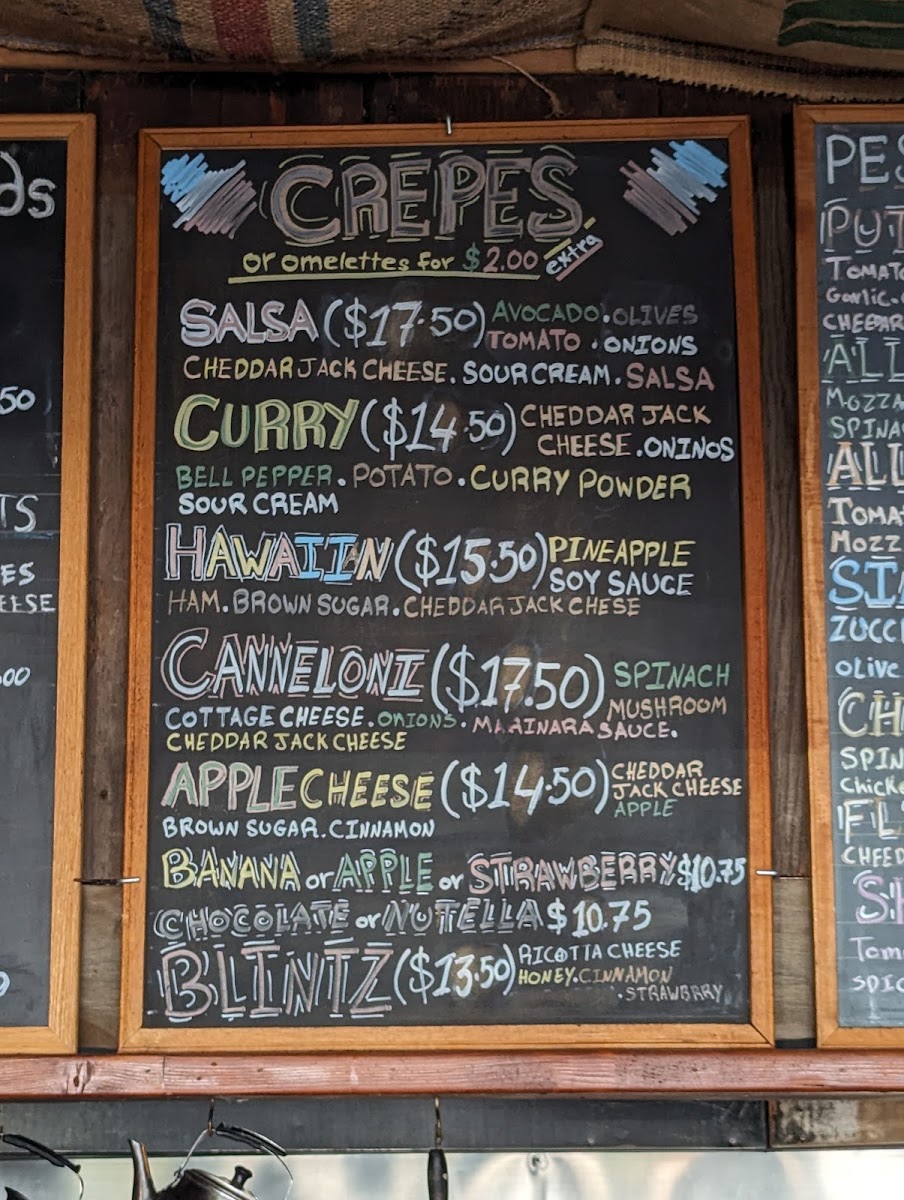 CREPES
or omelettes for $2.00 extra
SALSA ($17.50) AVOCADO. OLIVES
TOMATO . ONIONS
CHEDDAR JACK CHEESE. SOUR CREAM. SALSA
CURRY ($14.50) CHEDDAR JACK
CHEESE. ONINOS
BELL PEPPER. POTATO. CURRY POWDER
SOUR CREAM
HAWAIIN ($15.50) PINEAPPLE
SOY SAUCE
HAM. BROWN SUGAR. CHEDDAR JACK CHESE
CANNELONI ($17.50) SPINACH
MUSHROOM
COTTAGE CHEESE. ONIONS. MARINARA SAUCE.
CHEDDAR JACK CHEESE
APPLE CHEESE ($14.50) CHEDDAR
JACK CHEESE
APPLE
BROWN SUGAR. CINNAMON
BANANA or APPLE or STRAWBERRY $10.75
CHOCOLATE or NUTELLA $10.75
BLINTZ ($13.50) RICOTTA CHEESE
HONEY. CINNAMON
. STRAWBRRY
ds
50
TS
ES
EESE
00
PES
TOMATO
Garlic.
CHEEDAR
ALL
MOZZA
SPINA
ALL
TOMA
MOZZ
ZUCC
OLIVE
CH
SPIN
Chicke
CHEED
Tom
SPIC